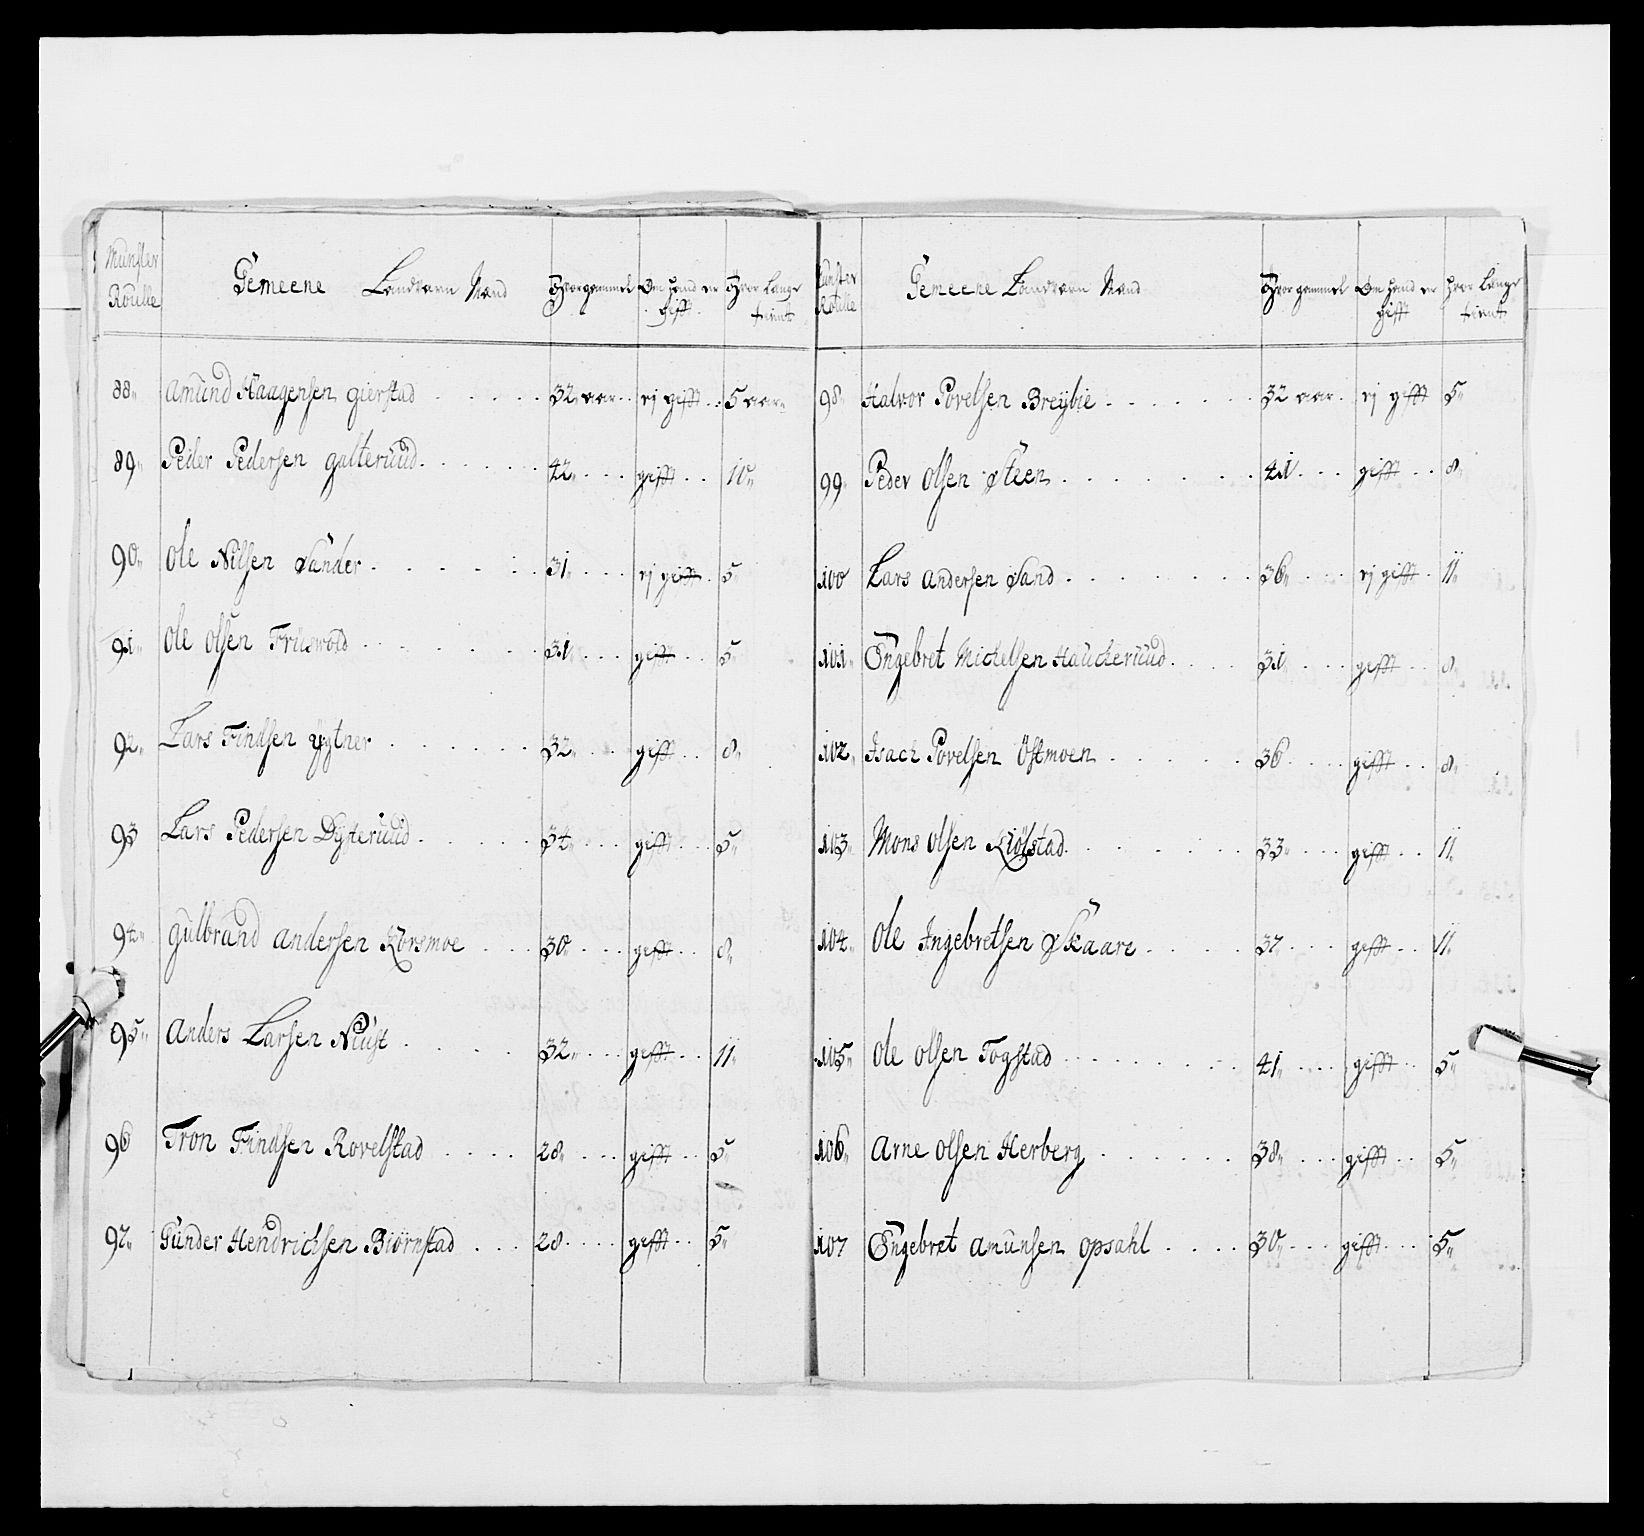 Munster Roulle | Gemeene Landværn Mænd | Hvor gammel | Om hand er gifft | Hvor længe tient
88 | Amund Haagensen Gierstad | 32 aar | ej gifft | 5 aar
89 | Peder Pedersen Galteruud | 42 | gifft | 10
90 | Ole Nilsen Sander | 31 | ej gifft | 5
91 | Ole Olsen Friiswold | 31 | gifft | 5
92 | Lars Findsen Ygtner | 32 | gifft | 8
93 | Lars Pedersen Dysteruud | 34 | gifft | 5
94 | Gulbrand Andersen Korsmoe | 30 | gifft | 8
95 | Anders Larsen Niust | 32 | gifft | 11
96 | Tron Findsen Rovelstad | 28 | gifft | 5
97 | Gunder Hendrichsen Biørnstad | 28 | gifft | 5
Munster Roulle | Gemeene Landværn Mænd | Hvor gammel | Om hand er gifft | Hvor længe tient
98 | Halvor Povelsen Breybie | 32 aar | ej gifft | 5
99 | Peder Olsen Steen | 41 | gifft | 8
100 | Lars Andersen Sand | 36 | ej gifft | 11
101 | Engebret Michelsen Hauckeruud | 31 | gifft | 8
102 | Isach Povelsen Östmoen | 36 | gifft | 8
103 | Mons Olsen Kiölstad | 33 | gifft | 11
104 | Ole Ingebretsen Skaare | 37 | gifft | 11
105 | Ole Olsen Togstad | 41 | gifft | 5
106 | Arne Olsen Herberg | 38 | gifft | 5
107 | Engebret Amunsen Opsahl | 30 | gifft | 5